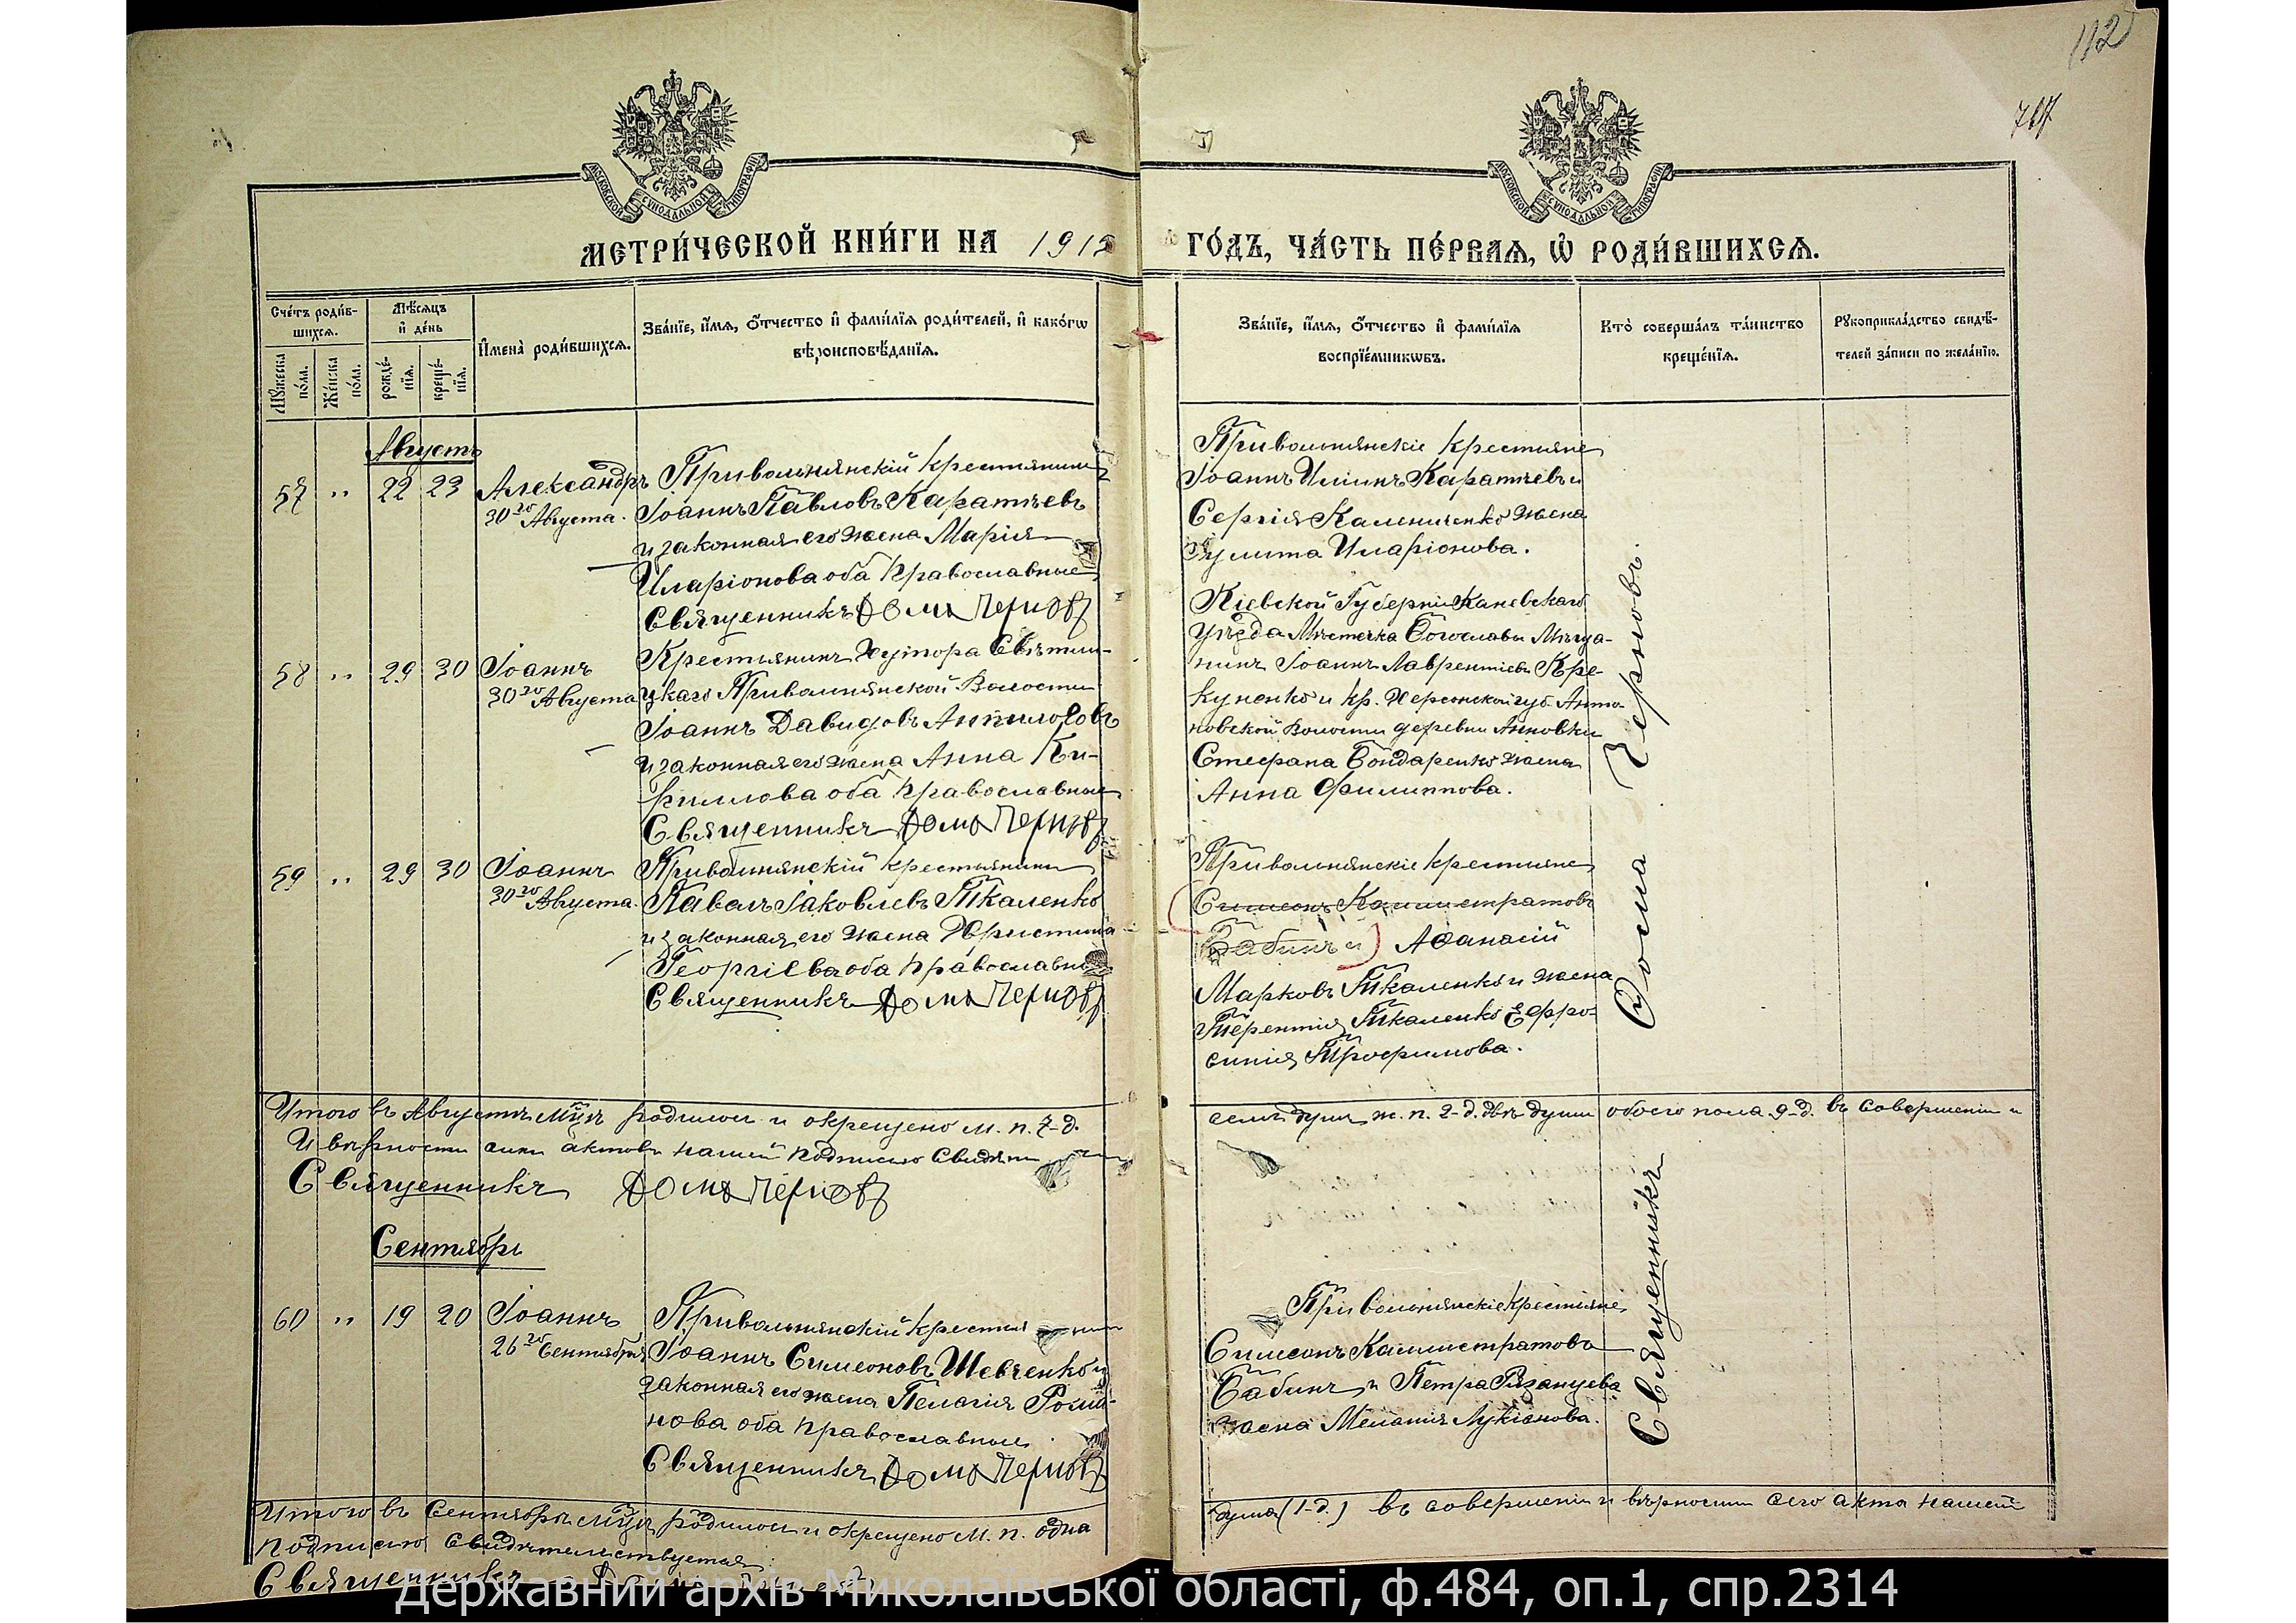 112
МЕТРИ́ЧЕСКОЙ КНИ́ГИ НА 1912
ГО́ДЪ, ЧА́СТЬ ПЕ́РВАѦ, Ѡ҆ РОДИ́ВШИХСѦ.
МОСКОВСКОЙ СѴНОДАЛЬНОЙ ТИПОГРАФІИ
МОСКОВСКОЙ СѴНОДАЛЬНОЙ ТИПОГРАФІИ
Сче́тъ роди́вшихсѧ.
Мꙋжеска по́ла.
Же́нска по́ла.
Мѣ́сѧцъ и҆ де́нь
рожде́нїѧ.
креще́нїѧ.
И҆мена̀ роди́вшихсѧ.
Зва́нїе, и҆́мѧ, ѻ҆́тчество и҆ фами́лїѧ роди́телей, и҆ како́гѡ
вѣроисповѣ́данїѧ.
Зва́нїе, и҆́мѧ, ѻ҆́тчество и҆ фами́лїѧ
воспрїе́мникѡвъ.
Кто̀ соверша́лъ та́инство
креще́нїѧ.
Рꙋкоприкла́дство свидѣ́-
телей за́писи по жела́нїю.
Августъ
57 " 22 23 Александръ
30го Августа.
Привольнянскій крестьянинъ
Іоаннъ Павловъ Каратѣевъ
и законная его жена Марія
Иларіонова оба православные
Священникъ Ѳома Черновъ
Привольнянскіе крестьяне
Іоаннъ Каратѣевъ и
Сергія Калениченко жена
Іулита Иларіонова.
58 " 29 30 Іоаннъ
30го Августа
Крестьянинъ хутора
Привольнянской Волости
Іоаннъ Давидовъ
и законная его жена Анна Ки-
риллова оба православные
Священникъ Ѳома Черновъ
Кіевской Губерніи Каневскаго
уѣзда Мѣстечка Богослава Мѣща-
нинъ Іоаннъ Лаврентіевъ Кре-
куненко и кр. Херсонской губ. Анто-
новской Волости деревни Анновки
Стефана Бондаренко жена
Анна Филиппова.
59 " 29 30 Іоаннъ
30го Августа.
Привольнянскій крестьянинъ
Павелъ Іаковлевъ Ткаленко
и законная его жена Христина
Георгіева оба православные
Священникъ Ѳома Черновъ
Привольнянскіе крестьяне
Симеонъ Каллистратовъ
Бабинъ и Аѳанасій
Марковъ Ткаленко и жена
Терентія Ткаленко Ефро-
синія Трофимова.
Итого въ Августѣ мцѣ родилось и окрещено м. п. 7-д.
семь душъ ж. п. 2-д. двѣ души обоего пола 9-д. въ совершеніи и
И вѣрности сихъ актовъ нашей подписью
Священникъ Ѳома Черновъ
Сентябрь
60 " 19 20 Іоаннъ
26го Сентября
Привольнянскій
Іоаннъ Симеоновъ Шевченко и
законная его жена Пелагія
нова оба православные.
Священникъ Ѳома Черновъ
Привольнянскіе крестьяне
Симеонъ Каллистратовъ
Бабинъ и Петра Рязанцева
жена Меланія Лукіанова.
Священникъ Ѳома Черновъ.
Итого въ Сентябрѣ мцѣ родилось и окрещено м. п. одна
душа (1-д.) въ совершеніи и вѣрности сего акта нашей
подписью свидѣтельствуется:
Священникъ
Державний архів Миколаївської області, ф.484, оп.1, спр.2314